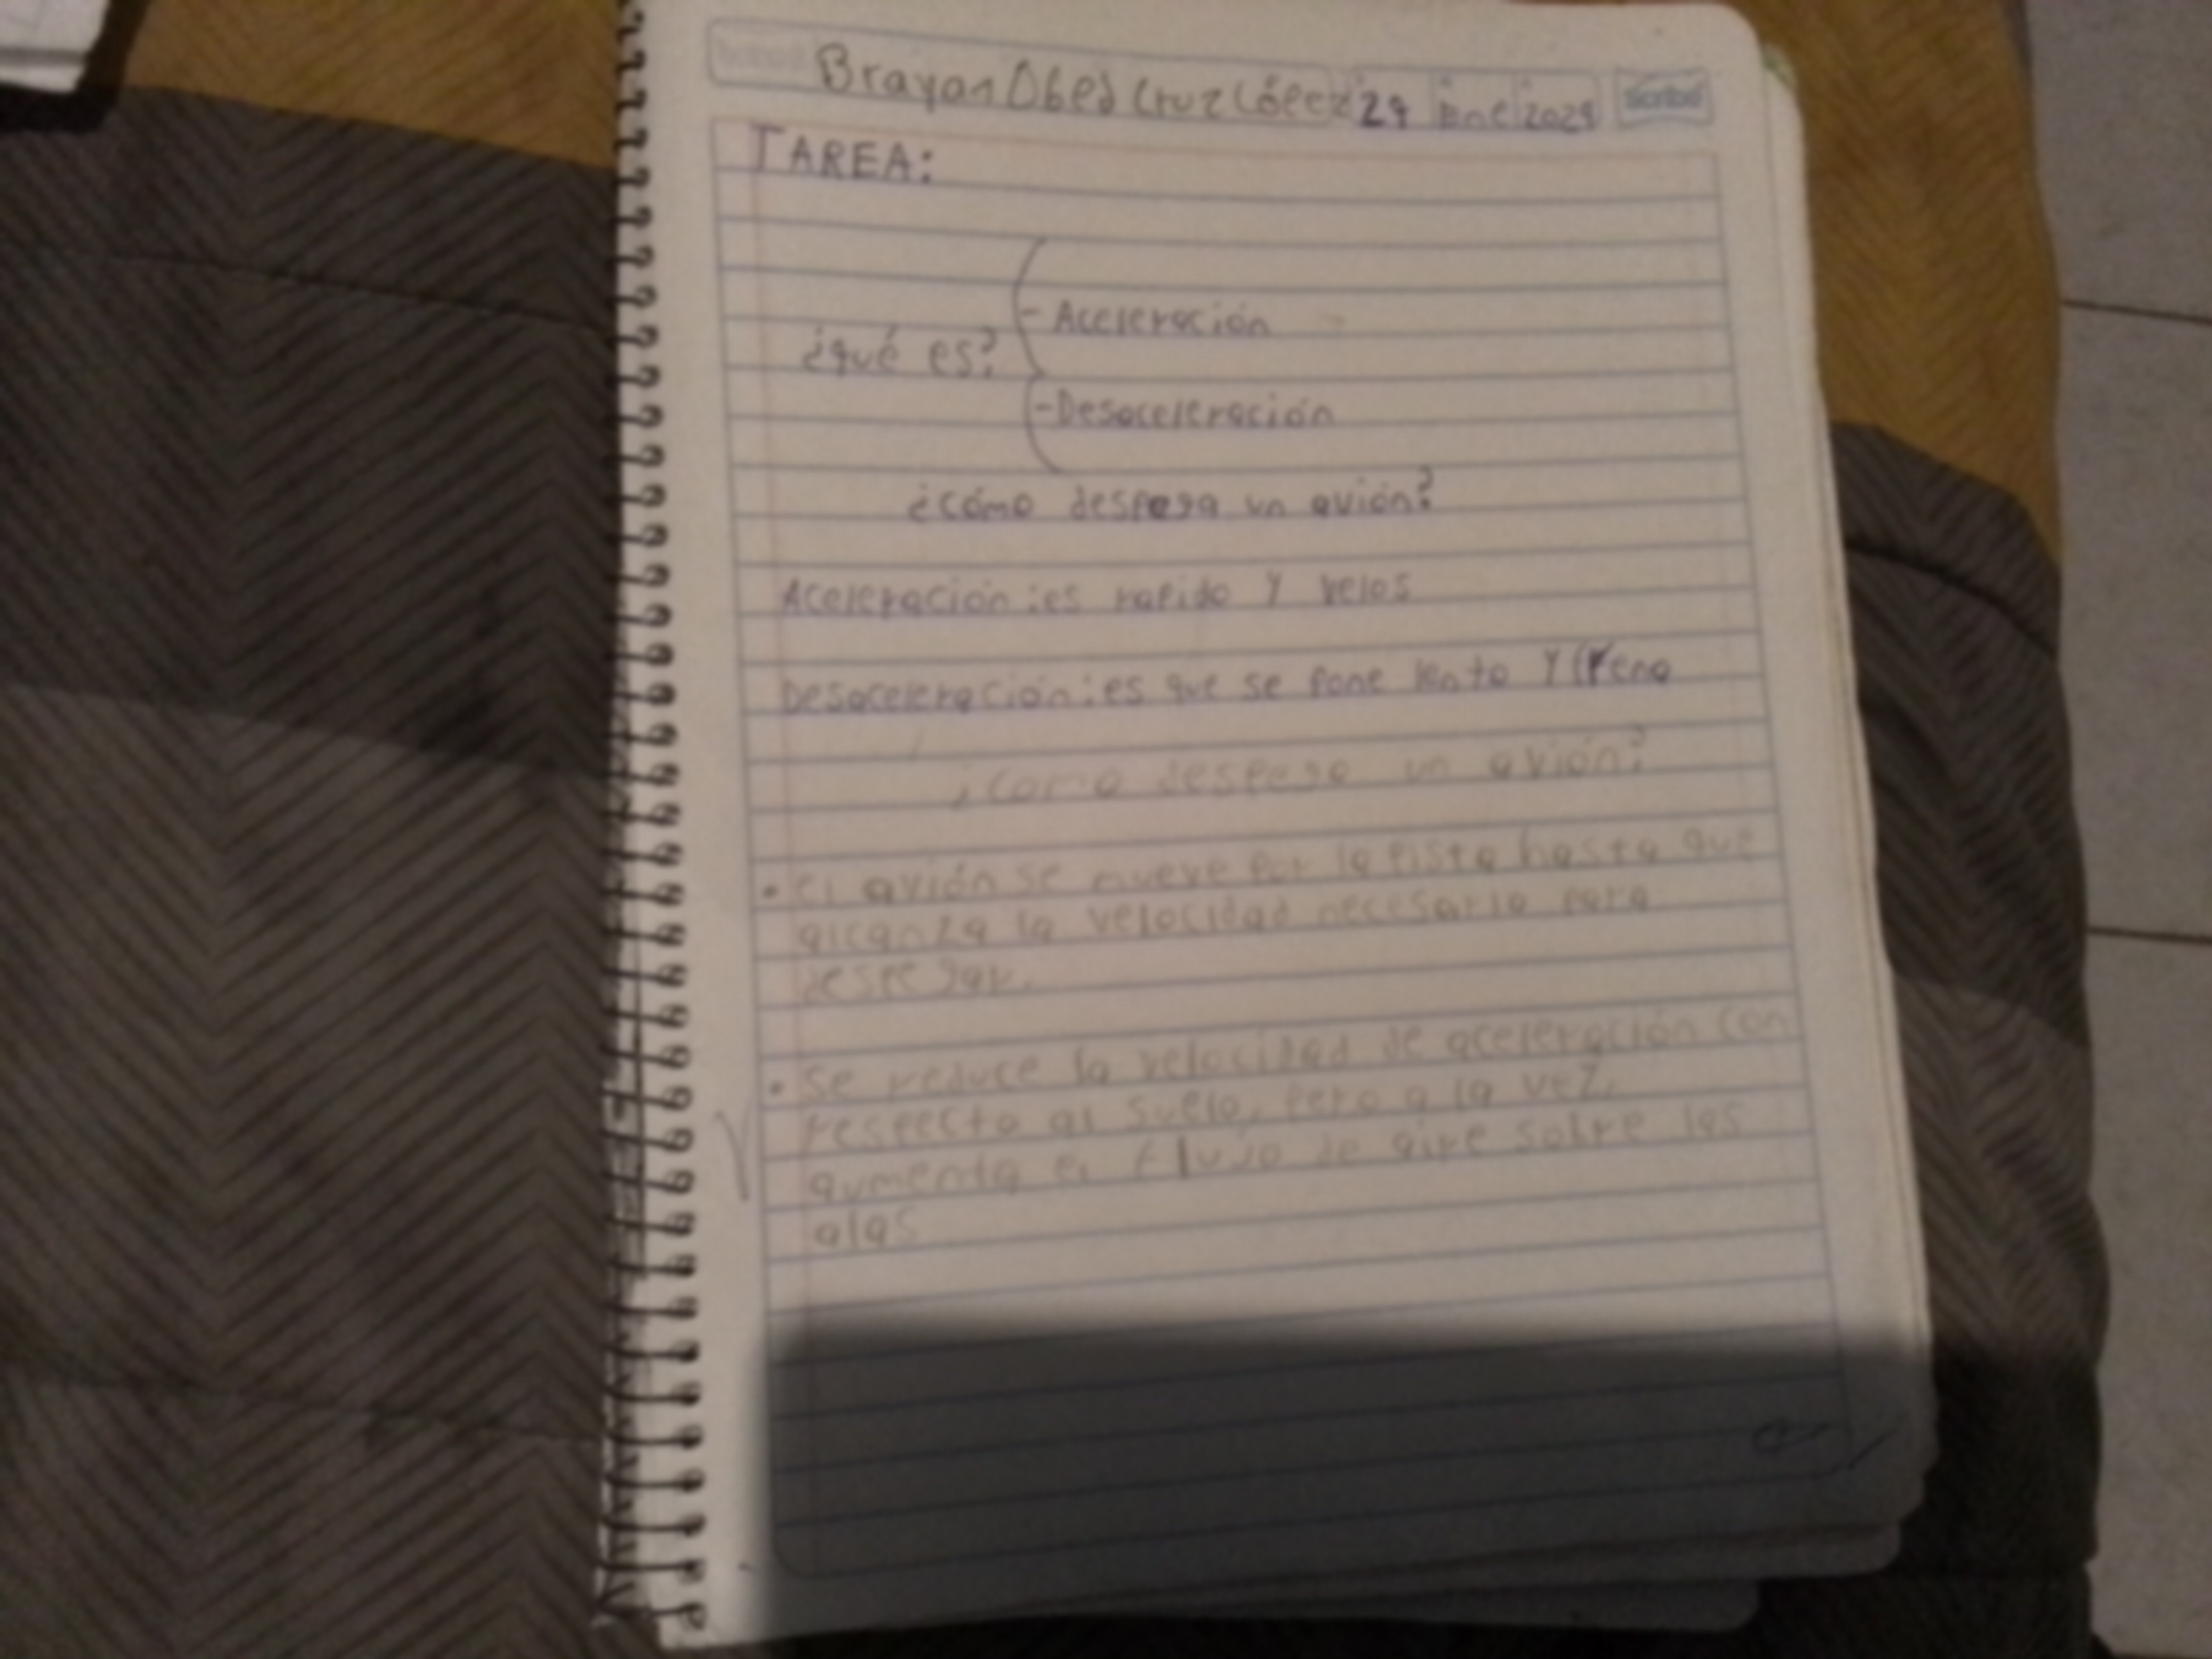 Brayan Obed Cruz López 24 Ene 2024 Scribe
TAREA:
- Aceleración
¿qué es?
- Desaceleración
¿cómo despega un avión?
Aceleración: es rapido y velos
Desaceleración: es que se pone lento y frena
¿como despega un avión?
• el avión se mueve por la pista hasta que
alcanza la velocidad necesaria para
despegar.
• Se reduce la velocidad de aceleración con
respecto al suelo, pero a la vez,
aumenta el flujo de aire sobre las
alas